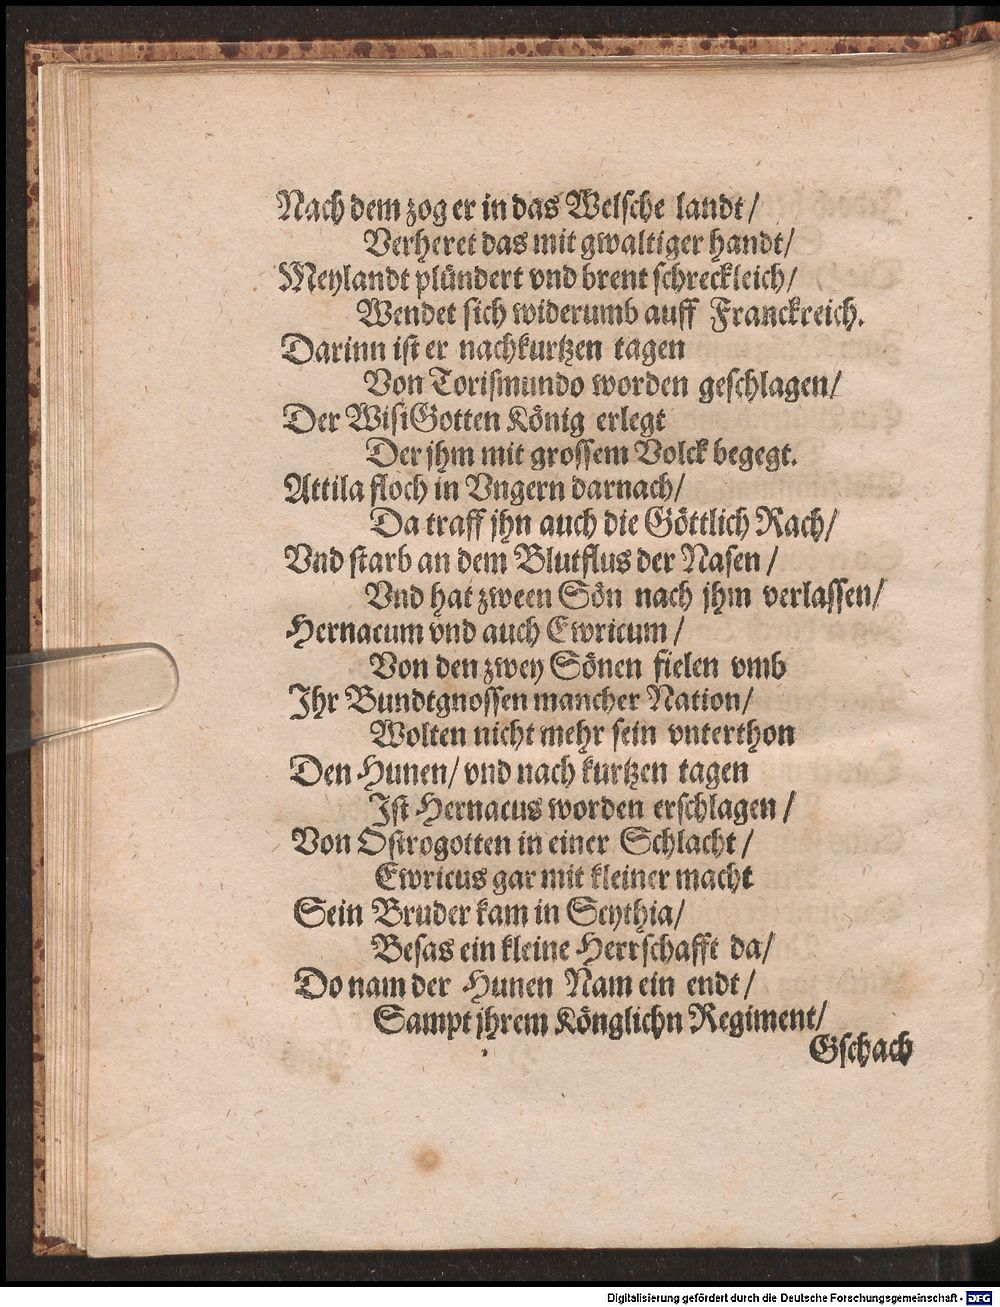 Nach dem zog er in das Welsche landt/
Verheret das mit gwaltiger handt/
Meylandt plündert vnd brent schreckleich/
Wendet sich widerumb auff Franckreich.
Darinn ist er nach kurtzen tagen
Von Torismundo worden geschlagen/
Der WisiGotten König erlegt
Der jhm mit grossem Volck begegt.
Attila floch in Vngern darnach/
Da traff jhn auch die Göttlich Rach/
Vnd starb an dem Blutflus der Nasen/
Vnd hat zween Sön nach jhm verlassen/
Hernacum vnd auch Ewricum/
Von den zwey Sönen fielen vmb
Ihr Bundtgnossen mancher Nation/
Wolten nicht mehr sein vnterthon
Den Hunen/ vnd nach kurtzen tagen
Ist Hernacus worden erschlagen/
Von Ostrogotten in einer Schlacht/
Ewricus gar mit kleiner macht
Sein Bruder kam in Scythia/
Besas ein kleine Herrschafft da/
Do nam der Hunen Nam ein endt/
Sampt jhrem Könglichn Regiment/
Gschach
Digitalisierung gefördert durch die Deutsche Forschungsgemeinschaft - DFG